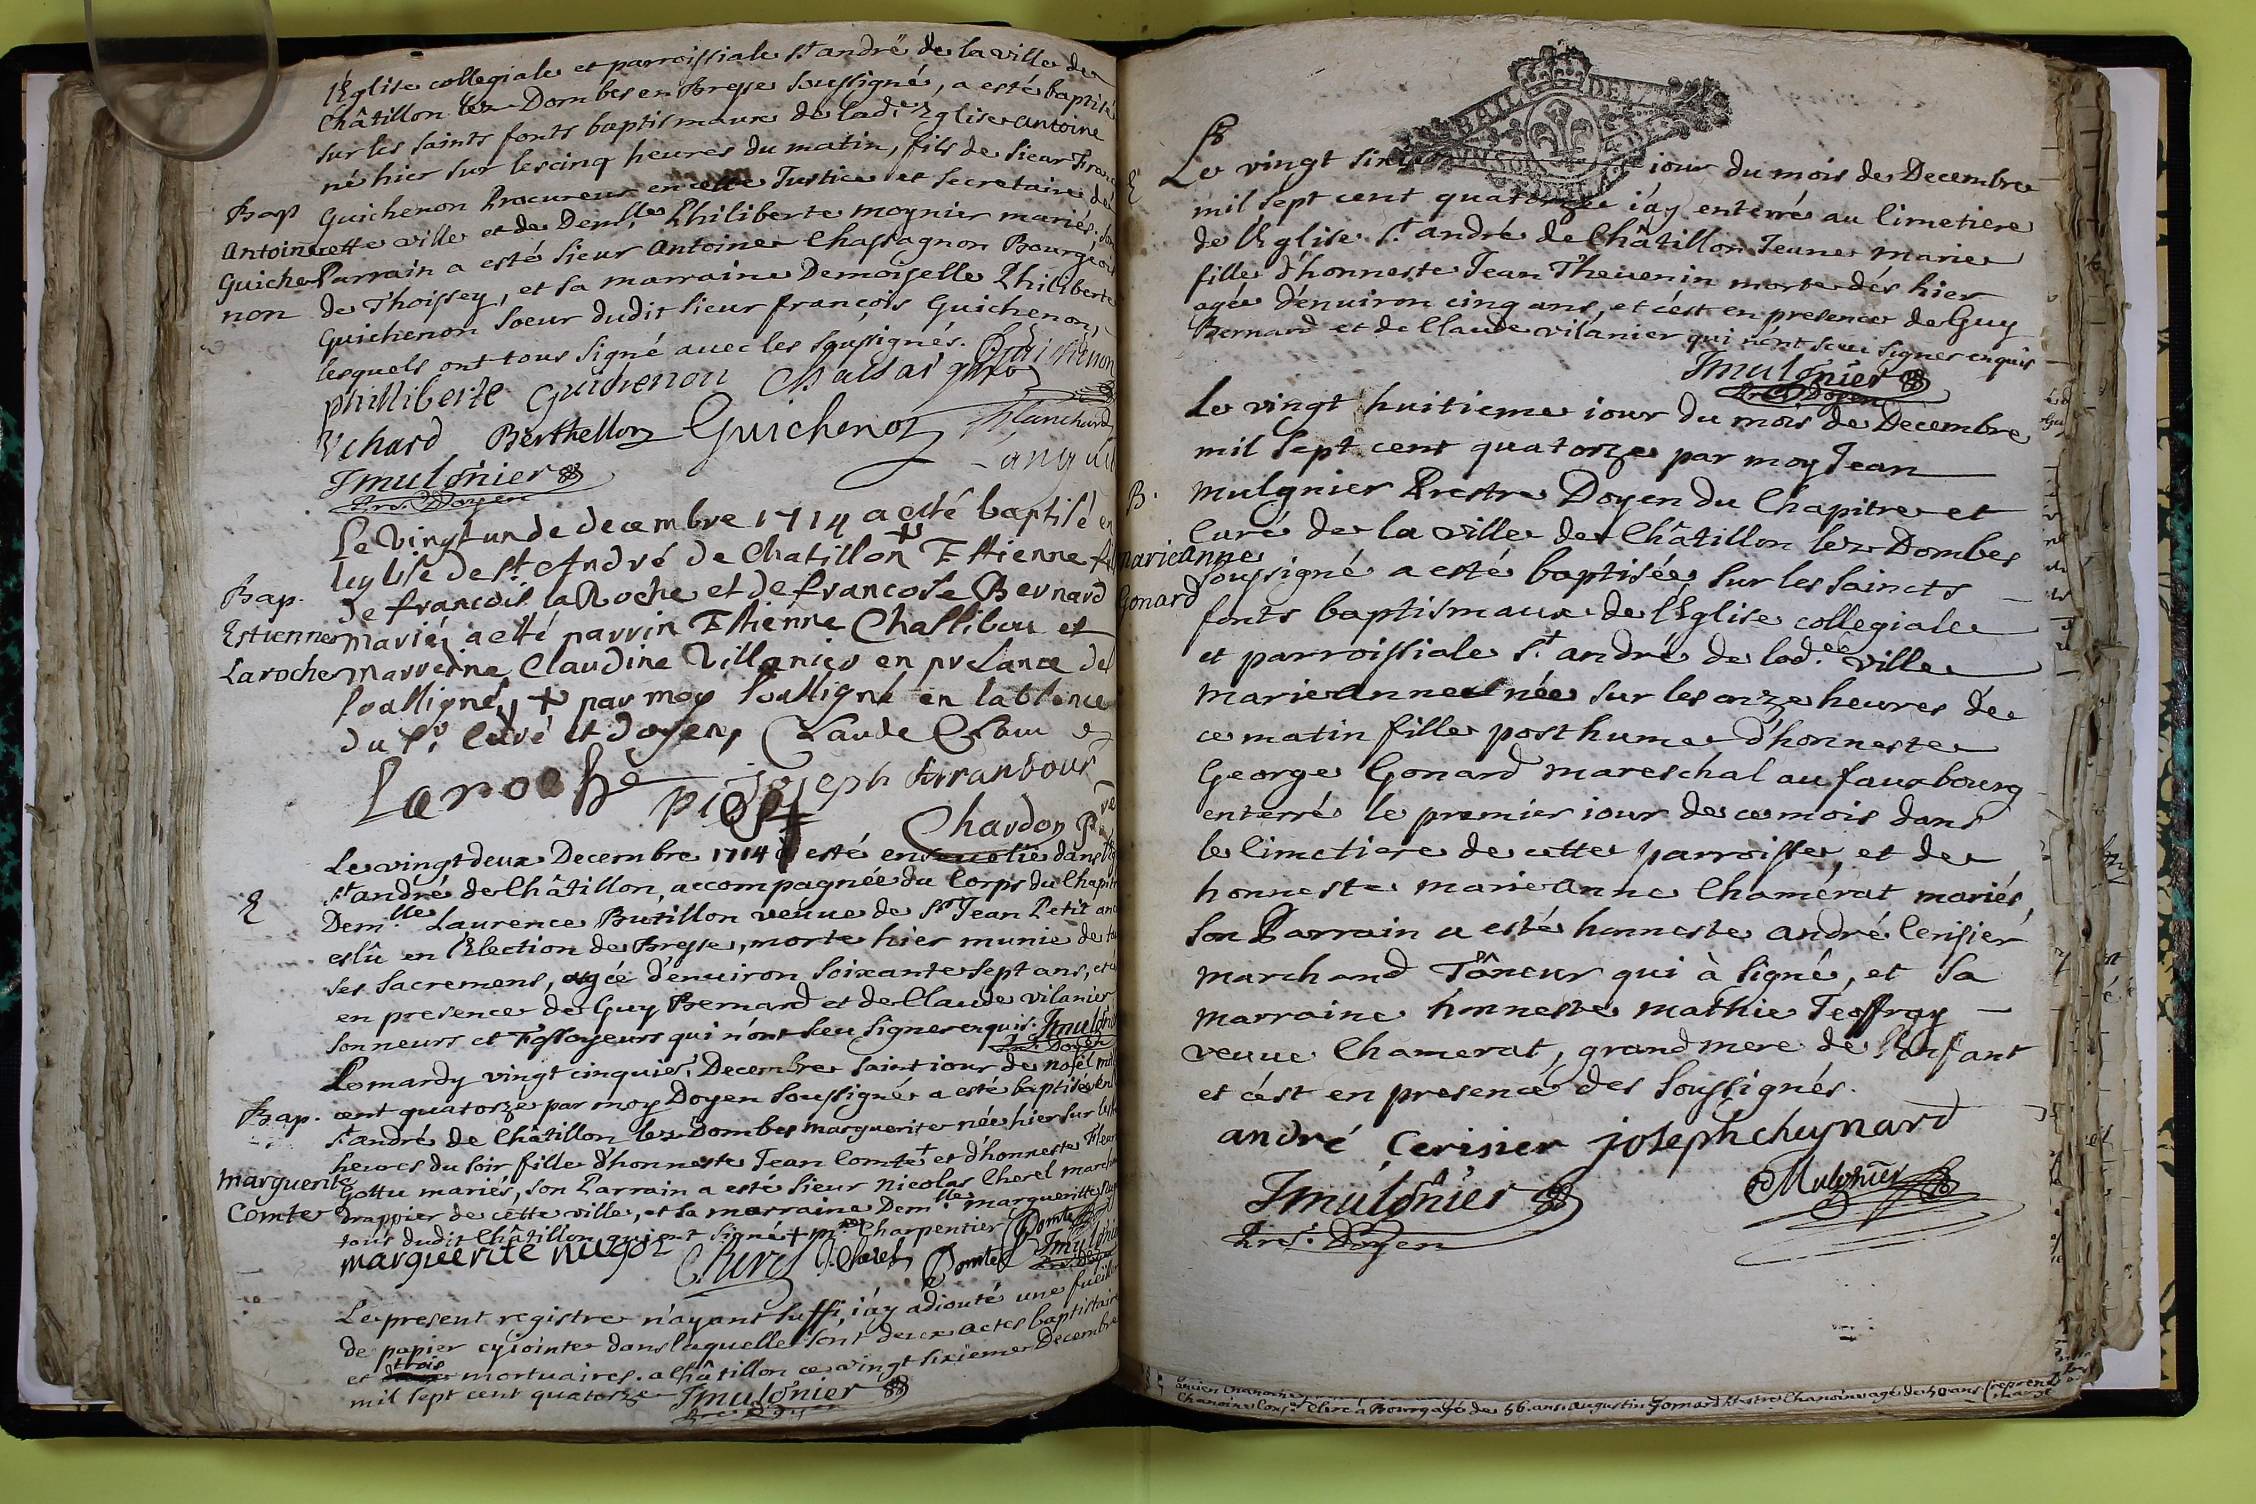 l'Eglise collegiale et parroissiale st. andré de la ville de
Châtillon lez Dombes en Bresse soussigné, a esté baptisé
sur les saints fonts baptismaux de lad.e Eglise antoine
né hier sur les cinq heures du matin, fils de sieur Franç
Bap
Guichenon Procureur en cette Justice et secretaire de
Antoine
cette ville et de Dem.lle Philiberte moynier mariés, son
Guiche
Parrain a esté sieur Antoine Chassagnon Bourgeois
non
de Thoissey, et sa marraine Demoiselle Philiberte
Guichenon soeur dudit sieur françois Guichenon,
lesquels ont tous signé avec les soussignés. Guichenon
philliberte Guichenon
Vchard Berthellon Guichenon Blanchard
Jmulönier
Pre. Doyen
Le Vingt un de decembre 1714 a esté baptisé en
leglise de st. André de Chatillon + Estienne fils
Bap.
de francois la Roche et de francoise Bernard
Estienne
mariés a esté parrin Estienne Chassibou et
Laroche
marreine Claudine Villanier en presance des
soussignés, + par moy soussigné en labsence
du sr. Curé et doyen,
Laroche Joseph Arranbour
Chardon P
Le vingt deux Decembre 1714 a esté ensevelie dans
E
st. andré de Châtillon, accompagnée du Corps du Chapitre
Dem.lle Laurence Butillon veuue de sr. Jean Petit anc
eslû en l'Election de Bresse, morte hier munie de
ses sacremens, agée d'enuiron soixante sept ans, et
en presence de Guy Bernard et de Claude vilanier
sonneurs et Fossoyeurs qui n'ont sceu signer enquis. Jmulönier
Pre. Doyen
Le mardy vingt cinquie. Decembre saint iour de noël mil
Bap.
cent quatorze par moy Doyen soussigné a esté baptisée en
st. andré de Châtillon lez Dombes marguerite née hier sur les
heures du soir fille d'honneste Jean Comte + et d'honneste Fleur
marguerite
Gottu mariés, son Parrain a esté sieur Nicolas Cherel march
Comte
drappier de cette ville, et sa marraine Dem.lle margueritte
tous dudit Châtillon qui ont signé + m.re Charpentier
marguerite nugoz Cherel Comte Jmulönier
Le present registre n'ayant suffi, i'ay adiouté une fueille
de papier cy iointe dans laquelle sont deux actes baptistaires
et trois mortuaires. a Châtillon ce vingt sixieme Decembre
mil sept cent quatorze Jmulönier
Pre. Doyen
E
Le vingt sixieme iour du mois de Decembre
mil sept cent quatorze i'ay enterré au Cimetiere
de l'Eglise st. andré de Châtillon Jeune marie
fille d'honneste Jean Theuenin morte dés hier
agée d'enuiron cinq ans, et c'est en presence de Guy
Bernard et de Claude vilanier qui n'ont sceu signer enquis
Jmulönier
Pre. Doyen
Le vingt huitieme iour du mois de Decembre
mil sept cent quatorze par moy Jean
B.
mulonier Prestre Doyen du Chapitre et
Curé de la ville de Châtillon lez Dombes
marieanne
soussigné a esté baptisée sur les saincts
Gonard
fonts baptismaux de l'Eglise collegiale
et parroissiale st. andré de lad.e ville
marieanne née sur les onze heures de
ce matin fille posthume d'honneste
George Gonard mareschal au fauxbourg
enterré le premier iour de ce mois dans
le Cimetiere de cette parroisse, et de
honneste marieanne Chamerat mariés,
son Parrain a esté honneste andré Cerisier
marchand Tâneur qui à signé, et sa
marraine honneste mathie Jeoffray
veuue Chamerat, grand mere de l'enfant
et c'est en presence des soussignés.
andré Cerisier joseph cheynard
Jmulönier Mulonier
Pre. Doyen
Chanoine agé de 56. ans. augustin Gomard Prestre Chanoine agé de 50 ans